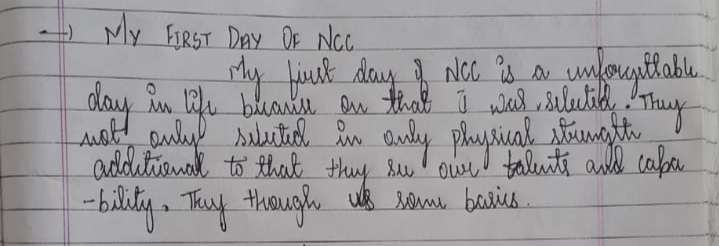 →) MY FIRST DAY OF NCC
My first day of NCC is a unforgettable
day in life because on that I was selected. They
not only selected in only physical strength
additional to that they see our talents and capa
-bility. They through us some basics.